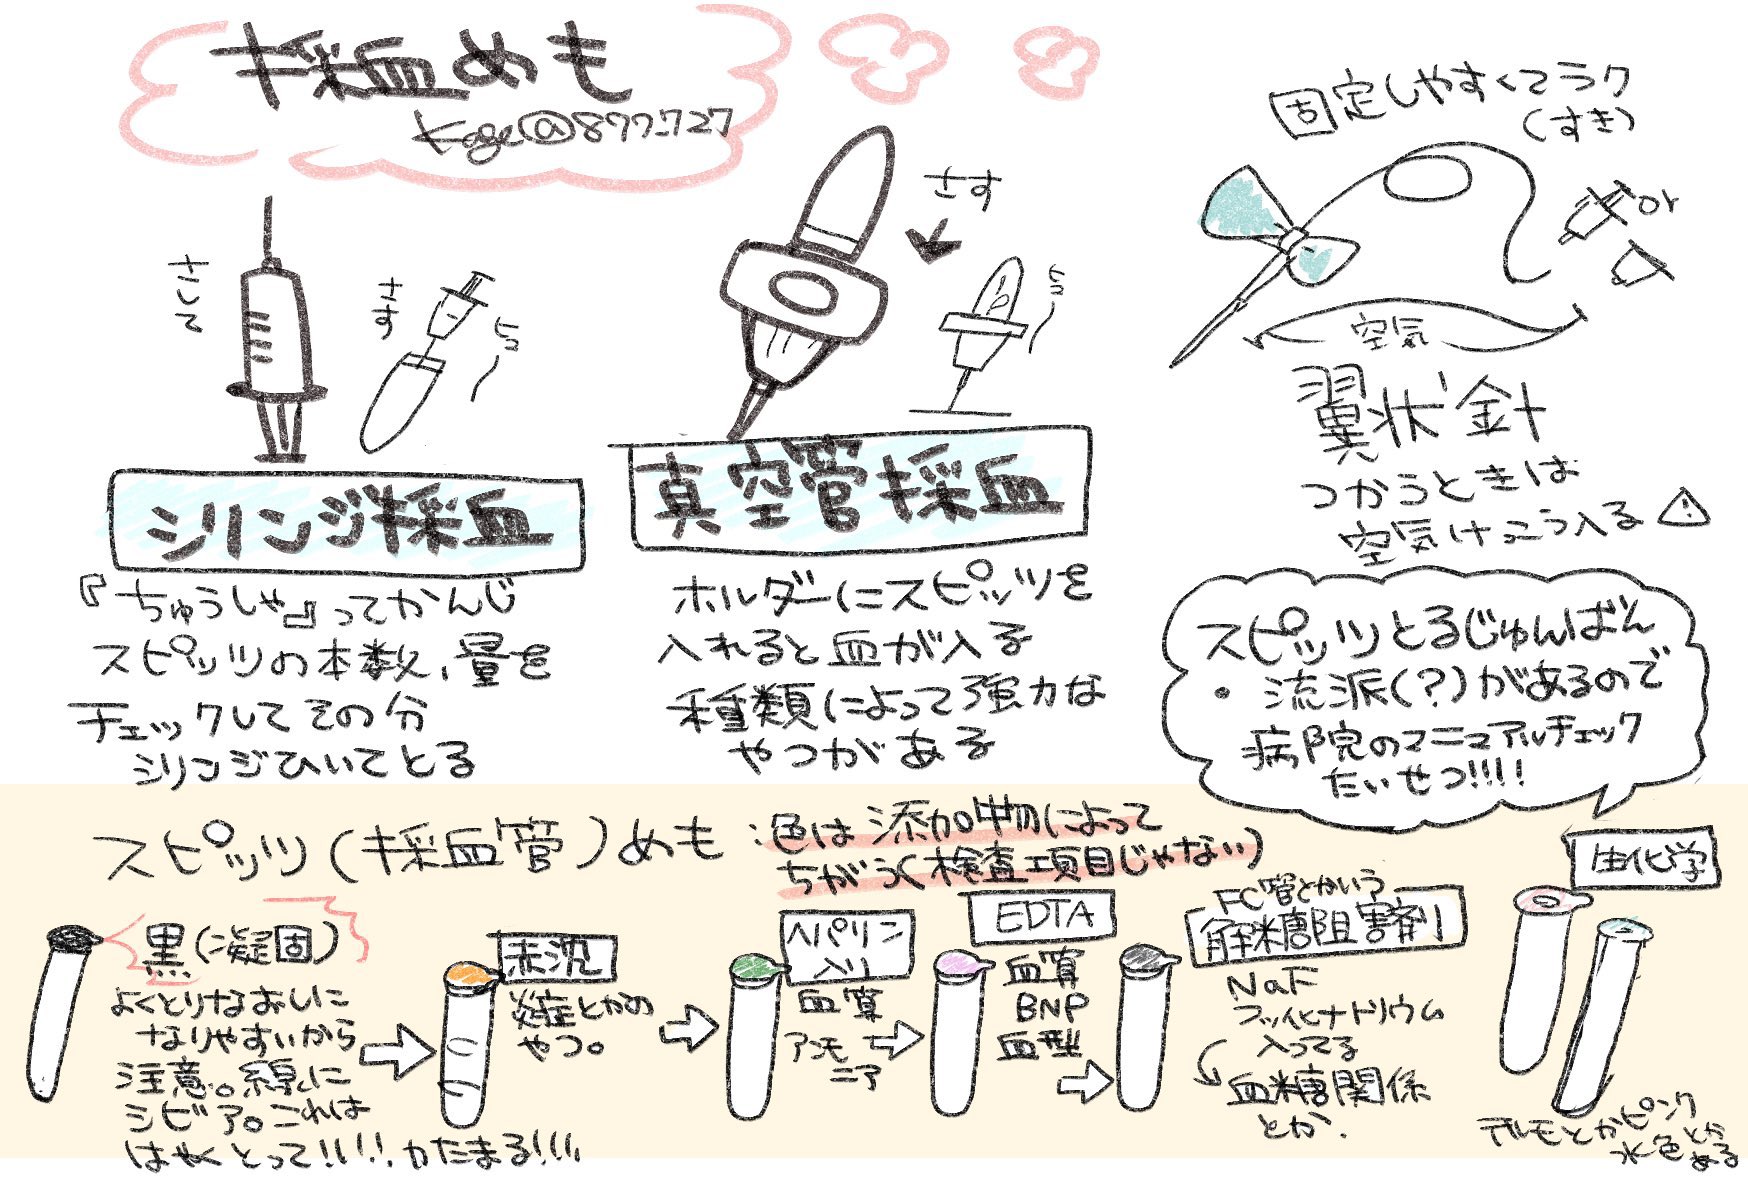 採血めも
Kage@877_727
さして
さす
ピュ
シリンジ採血
『ちゅうしゃ』ってかんじ
スピッツの本数、量を
チェックしてその分
シリンジひいてとる
さす
真空管採血
ホルダーにスピッツを
入れると血が入る
種類によって強力な
やつがある
固定しやすくてラク
(すき)
or
空気
翼状針
つかうときは
空気けっこう入る
スピッツとるじゅんばん
・流派(?)があるので
病院のマニュアルチェック
たいせつ!!!!
スピッツ(採血管)めも:色は添加物によって
ちがう(検査項目じゃない)
黒(凝固)
よくとりなおしに
なりやすいから
注意。線に
シビア。これは
はやくとって!!!!かたまる!!!
赤沈
炎症とかの
やつ。
ヘパリン
入り
血算
アンモ
ニア
EDTA
血算
BNP
血型
FC管とかいう
解糖阻害剤
NaF
フッ化ナトリウム
入ってる
血糖関係
とか.
生化学
テルモとかピンク
水色とか
ある